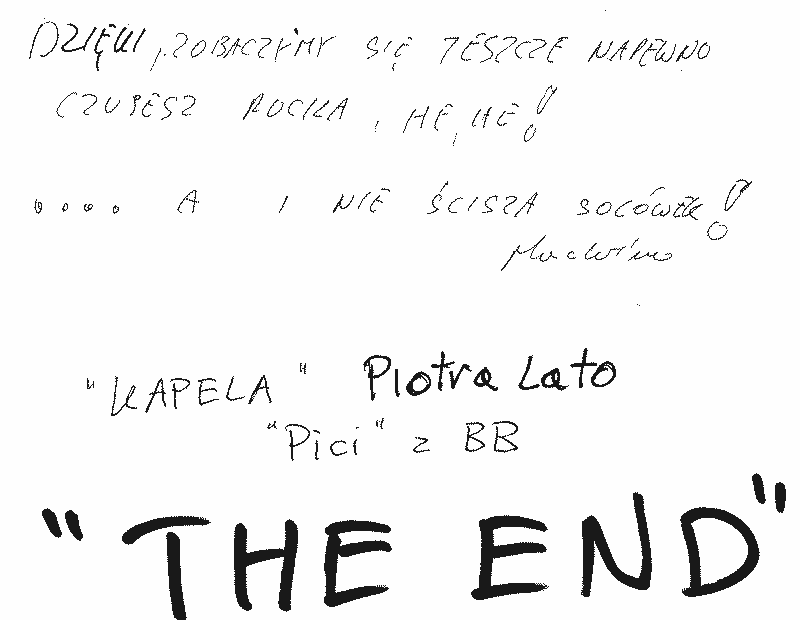 DZIĘKI, ZOBACZYMY SIĘ JESZCZE NAPEWNO
CZUBESZ ROCKA, HE, HE!
.... A I NIE ŚCISZA SOCÓWEK!
"KAPELA" Piotra Lato
"Pici" z BB
"THE END"